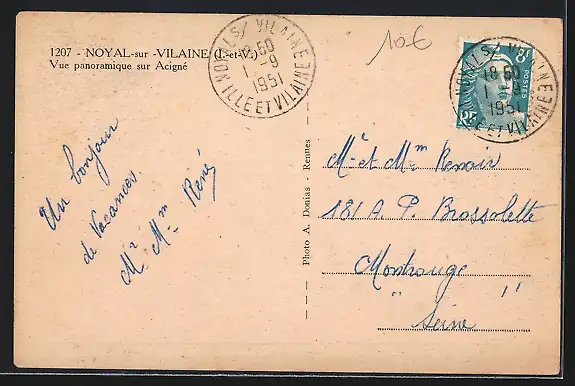 1207 - NOYAL-sur-VILAINE (I.-et-V.)
Vue panoramique sur Acigné
NOYAL S/ VILAINE
18 50
1 - 9
1951
ILLE ET VILAINE
10 €
POSTES
8F
NOYAL S/ VILAINE
18 50
1 - 9
1951
ILLE ET VILAINE
Un bonjour
de Vacances.
Mr Mme René
Photo A. Donias - Rennes
Mr et Mme Renoir
181 A. P. Brossolette
Montrouge
" "
Seine